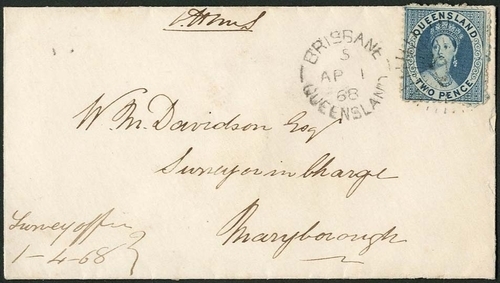 BRISBANE
S
AP 1
68
QUEENSLAND
QUEENSLAND
TWO PENCE
W. M. Davidson Esq
Surveyor in Charge
Maryborough
Survey office
1-4-68